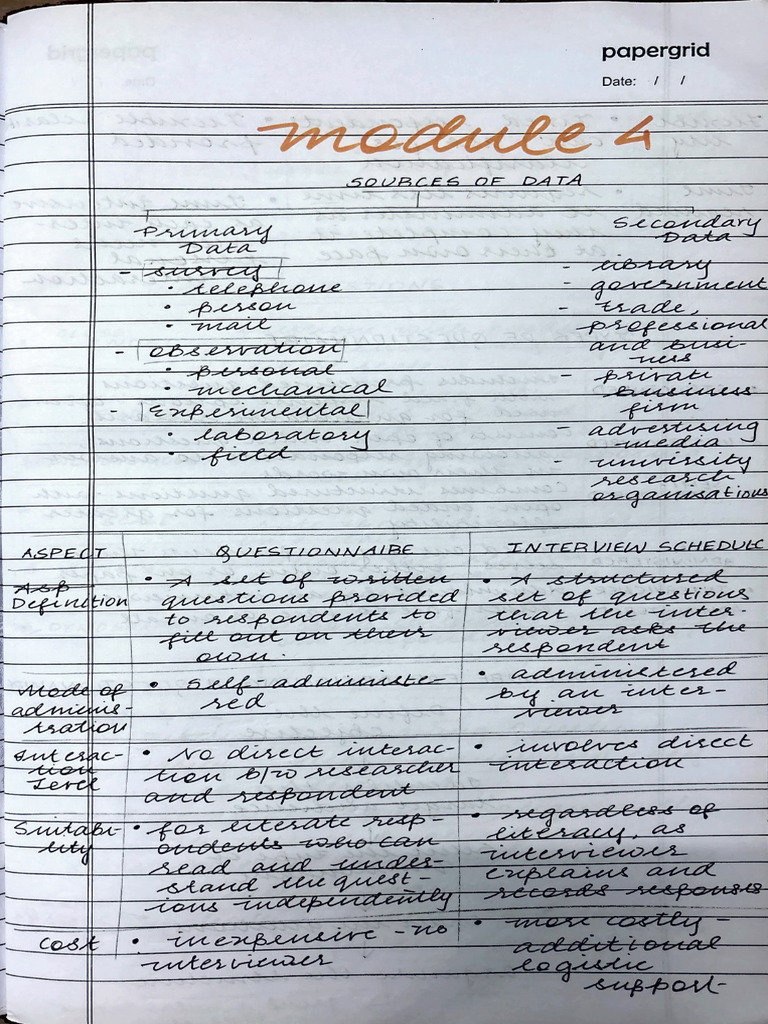 papergrid
Date: / /
module 4
SOURCES OF DATA
Primary
Data
- survey
• telephone
• person
• mail
- observation
• personal
mechanical
- Experimental
• laboratory
• field
Secondary
Data
- library
- government
- trade,
professional
and busi-
ness
- private
business
firm
- advertising
media
- univirsity
research
organisations
ASPECT QUESTIONNAIRE INTERVIEW SCHEDULE
Asp
Definition
• A set of written
questions provided
to respondents to
fill out on their
own.
• A structured
set of questions
that the inter-
viewer asks the
respondent
Mode of
adminis-
tration
• Self-administe-
red
• administered
by an inter-
viewer
Interac-
tion
Level
• No direct interac-
tion b/w researcher
and respondent
• involves direct
interaction
Suitabi-
lity
• for literate resp-
ondents who can
read and under-
stand the quest-
ions independently
• regardless of
literacy, as
interviewer
explains and
records responses
Cost
• inexpensive - no
interviewer
• more costly -
additional
logistic
support